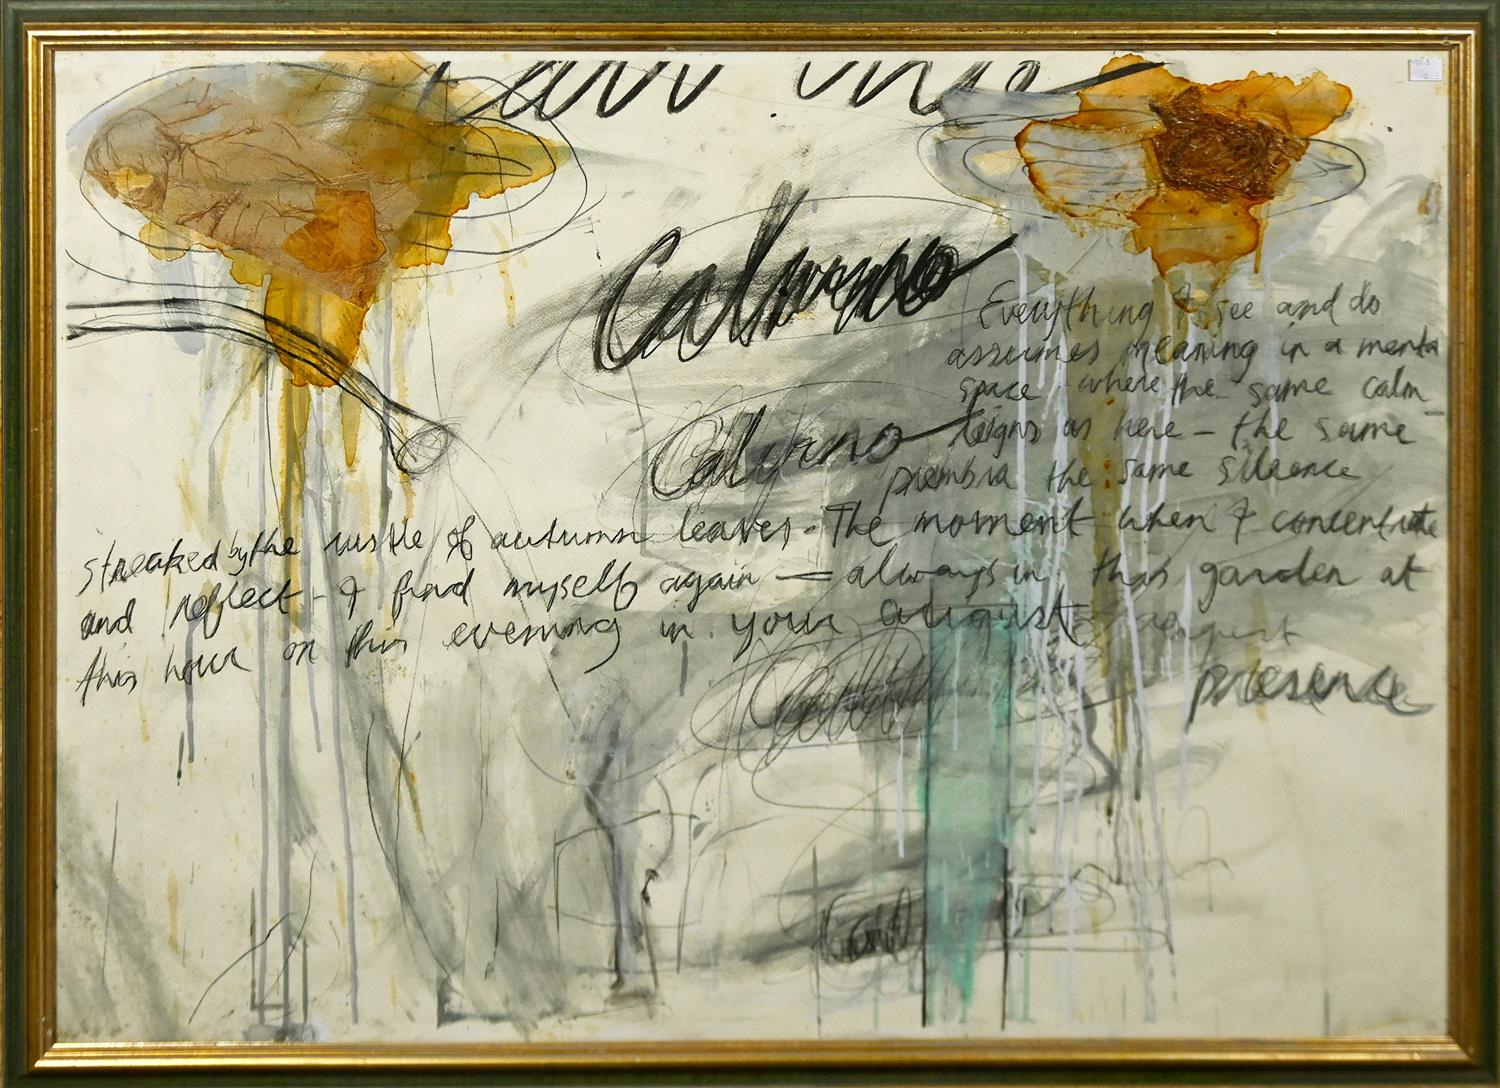 Calvino
Everything I see and do
assumes meaning in a menta
space where the same calm
Calvino reigns as here - the same
the same silence
streaked by the rustle of autumn leaves - The moment when I concentrate
and reflect - I find myself again - always in this garden at
this hour on this evening in your august
august
presence